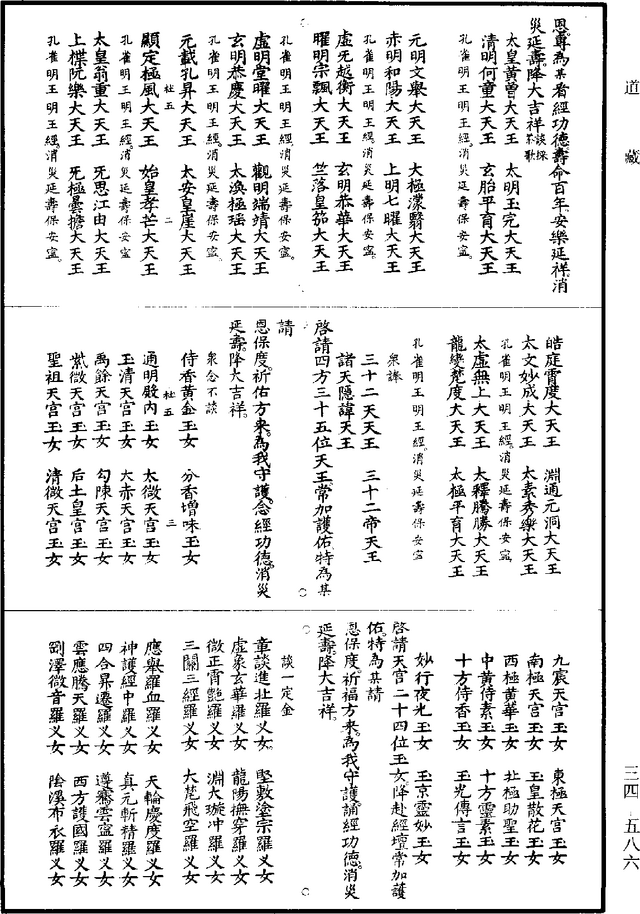 道藏
恩尊為某看經功德壽命百年安樂延祥消
災延壽降大吉祥
太皇黃曾大天王　太明玉完大天王
清明何童大天王　玄胎平育大天王
孔雀明王明王經消災延壽保安寧。
元明文舉大天王　太極濛翳大天王
赤明和陽大天王　上明七曜大天王
孔雀明王明王經。消災延壽保安寧。
虛无越衡大天王　玄明恭華大天王
曜明宗飄大天王　竺落皇笳大天王
孔雀明王明王經。消災延壽保安寧。
虛明堂曜大天王　觀明端靖大天王
玄明恭慶大天王　太渙極瑤大天王
孔雀明王明王經。消災延壽保安寧。
元載孔昇大天王　太安皇崖大天王
杜五　二
顯定極風大天王　始皇孝芒大天王
孔雀明王明王經。消災延壽保安寧。
太皇翁重大天王　无思江由大天王
上楪阮樂大天王　无極曇擔大天王
孔雀明王明王經。消災延壽保安寧。
皓庭霄度大天王　淵通元洞大天王
太文妙成大天王　太素秀樂大天王
孔雀明王明王經。消災延壽保安寧。
太虛無上大天王　大釋騰勝大天王
龍變梵度大天王　太極平育大天王
孔雀明王明王經。消災延壽保安寧
眾諫
三十二天天王　三十二帝天王
諸天隱諱天王
啓請四方三十五位天王常加護佑特為某
請
恩保度。祈佑方來。為我守護。念經功德。消災
延壽降大吉祥。
眾念不談
侍香黃金玉女　分香增味玉女
杜五　三
通明殿內玉女　太微天宮玉女
玉清天宮玉女　大赤天宮玉女
禹餘天宮玉女　勾陳天宮玉女
紫微天宮玉女　后土皇宮玉女
聖祖天宮玉女　清微天宮玉女
九宸天宮玉女　東極天宮玉女
南極天宮玉女　玉皇散花玉女
西極黃華玉女　北極助聖玉女
中黃侍素玉女　十方靈素玉女
十方侍香玉女　玉光傳言玉女
妙行夜光玉女　玉京靈妙玉女
啓請天宮二十四位玉女降赴經壇常加護
佑。特為某請
恩保度。祈福方來。為我守護。誦經功德。消災
延壽降大吉祥。
談一定金
章談進壯羅义女。　堅敷塗宗羅义女
虛象玄華羅义女。　龍陽撫穿羅义女
微正霄艷羅义女　淵大璇沖羅义女
三關三經羅义女　大梵飛空羅义女
應舉羅血羅义女　天輪慶度羅义女
神護經中羅义女　真元斬精羅义女
四合昇遷羅义女　遵齋雲寧羅义女
雲應騰天羅义女　西方護國羅义女
劉澤微音羅义女　陰溪布衣羅义女
三四-五八六